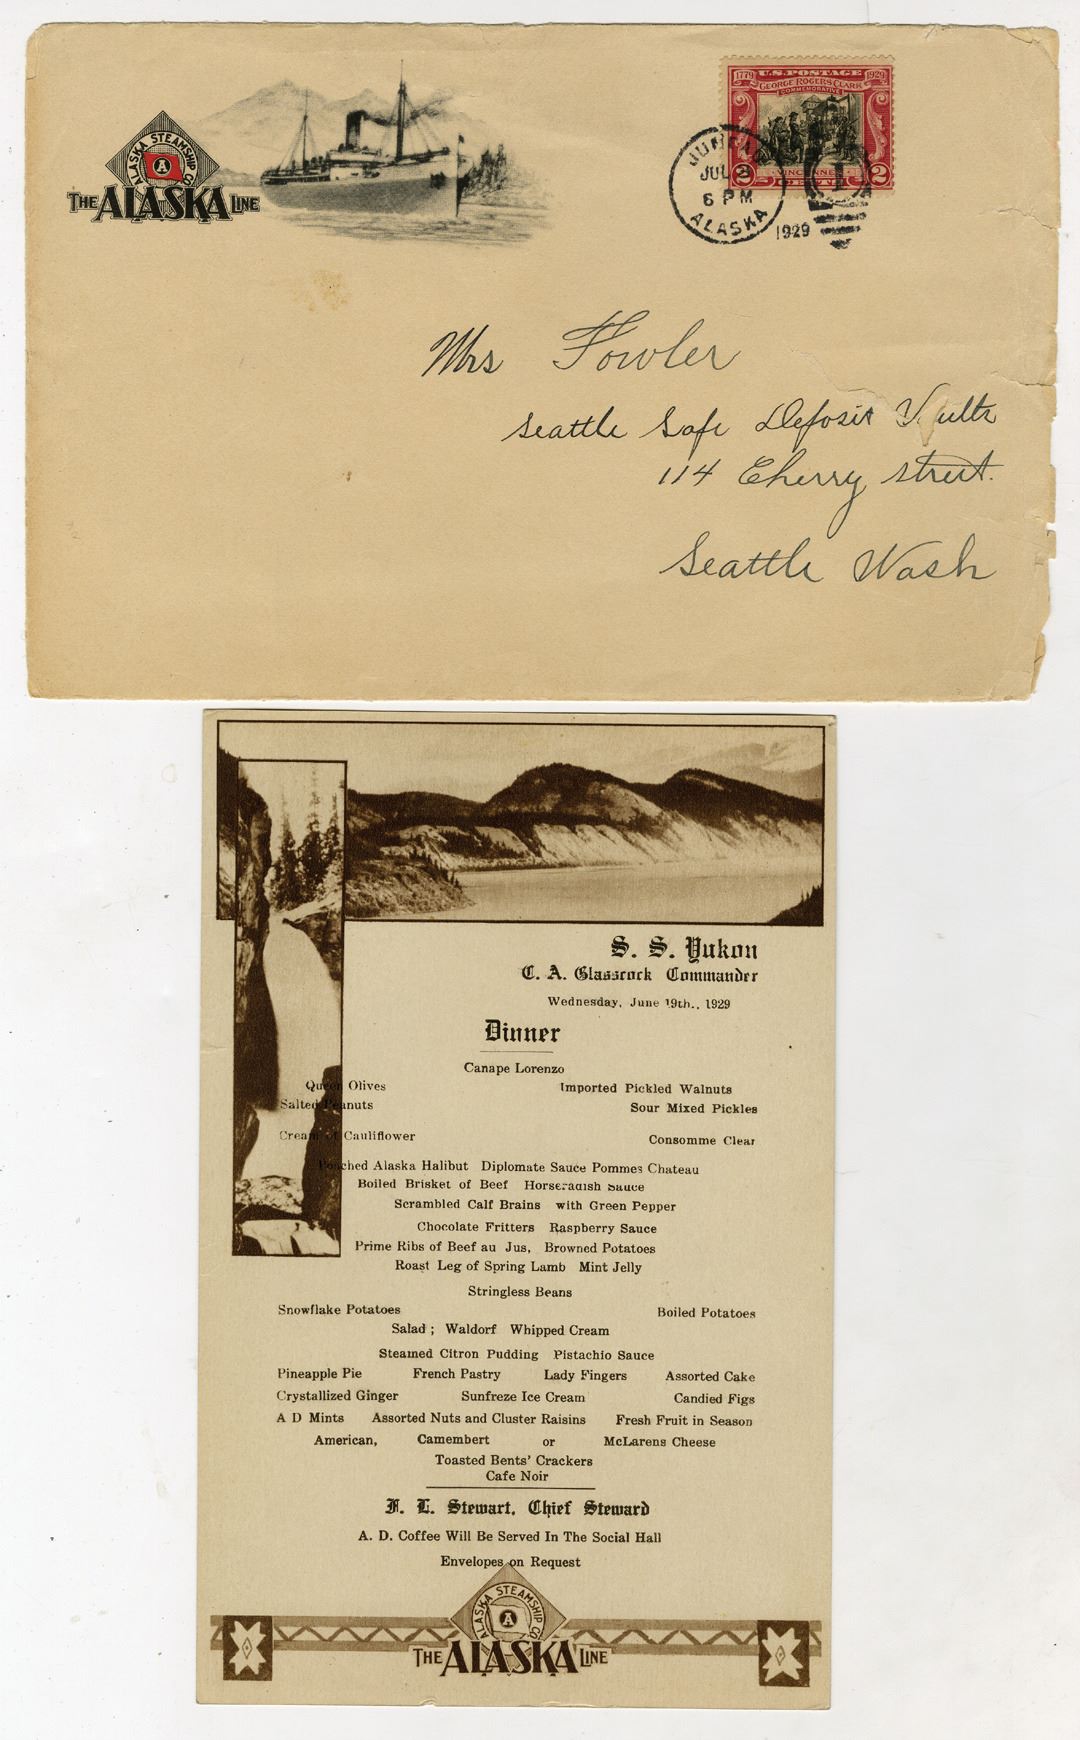 ALASKA STEAMSHIP CO.
A
THE ALASKA LINE
1779 U.S. POSTAGE 1929
GEORGE ROGERS CLARK
COMMEMORATIVE
2 2
JUL
6 PM
ALASKA
1929
Mrs Fowler
Seattle Safe Deposit Vaults
114 Cherry Street.
Seattle Wash
S. S. Yukon
C. A. Glasscock Commander
Wednesday, June 19th., 1929
Dinner
Canape Lorenzo
Queen Olives Imported Pickled Walnuts
Salted Peanuts Sour Mixed Pickles
Cream of Cauliflower Consomme Clear
Poached Alaska Halibut Diplomate Sauce Pommes Chateau
Boiled Brisket of Beef Horseradish Sauce
Scrambled Calf Brains with Green Pepper
Chocolate Fritters Raspberry Sauce
Prime Ribs of Beef au Jus, Browned Potatoes
Roast Leg of Spring Lamb Mint Jelly
Stringless Beans
Snowflake Potatoes Boiled Potatoes
Salad ; Waldorf Whipped Cream
Steamed Citron Pudding Pistachio Sauce
Pineapple Pie French Pastry Lady Fingers Assorted Cake
Crystallized Ginger Sunfreze Ice Cream Candied Figs
A D Mints Assorted Nuts and Cluster Raisins Fresh Fruit in Season
American, Camembert or McLarens Cheese
Toasted Bents' Crackers
Cafe Noir
F. L. Stewart, Chief Steward
A. D. Coffee Will Be Served In The Social Hall
Envelopes on Request
ALASKA STEAMSHIP CO.
A
THE ALASKA LINE